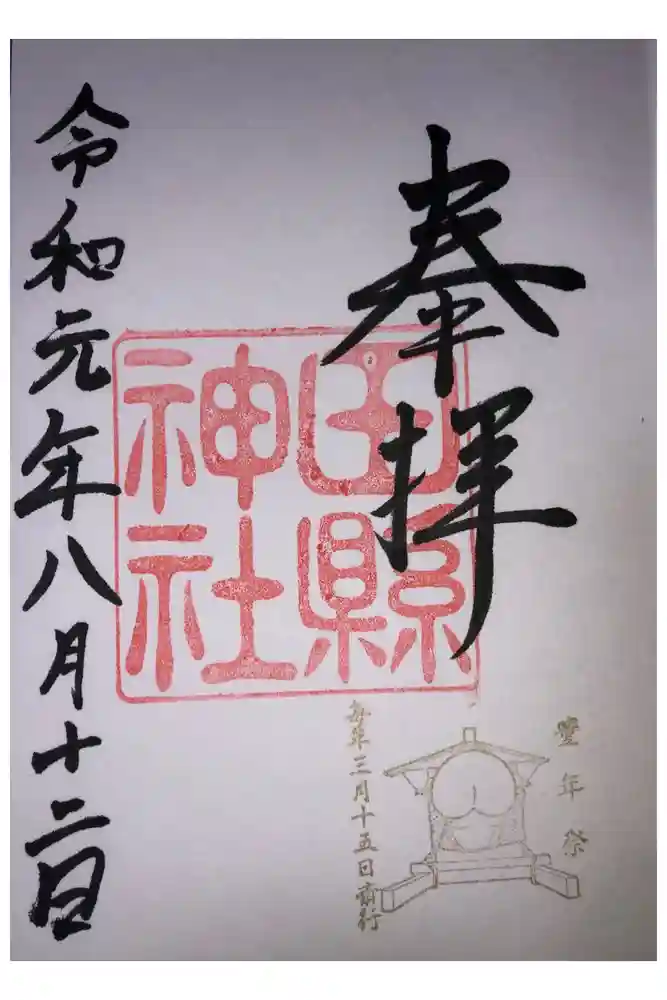 奉拝
田縣
神社
令和元年八月十二日
豊年祭
毎年三月十五日斎行